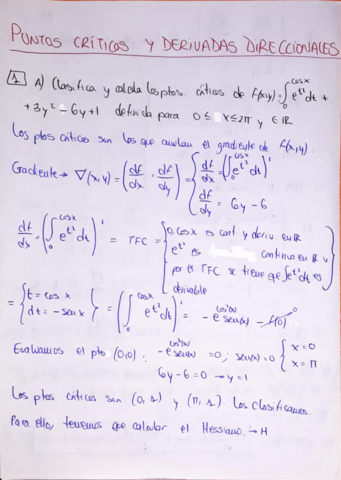 PUNTOS CRÍTICOS Y DERIVADAS DIRECCIONALES
1 A) Clasifica y calcula los ptos. críticos de f(x,y)=∫₀^cosx e^t² dt +
+3y²-6y+1 definida para 0≤x≤2π y ∈ ℝ
Los ptos críticos son los que anulan el gradiente de f(x,y):
Gradiente → ∇(x,y) = (df/dx, df/dy) = { df/dx = (∫₀^cosx e^t² dt)'
df/dy = 6y-6
df/dx = (∫₀^cosx e^t² dt)' = TFC = { 0, cos x es cont y deriv en ℝ
e^t² es continua en ℝ y
por el TFC se tiene que ∫e^t² dt es
derivable }
= { t = cos x
dt = -sen x } = (∫₀^cosx e^t² dt)' = -e^cos²(x) sen(x) - f(0)→0
Evaluamos el pto (0,0): -e^cos²(x) sen(x) = 0; sen(x)=0 { x=0
x=π
6y-6=0 → y=1
Los ptos críticos son (0,1) y (π,1). Los clasificamos.
Para ello, tenemos que calcular el Hessiano. → H